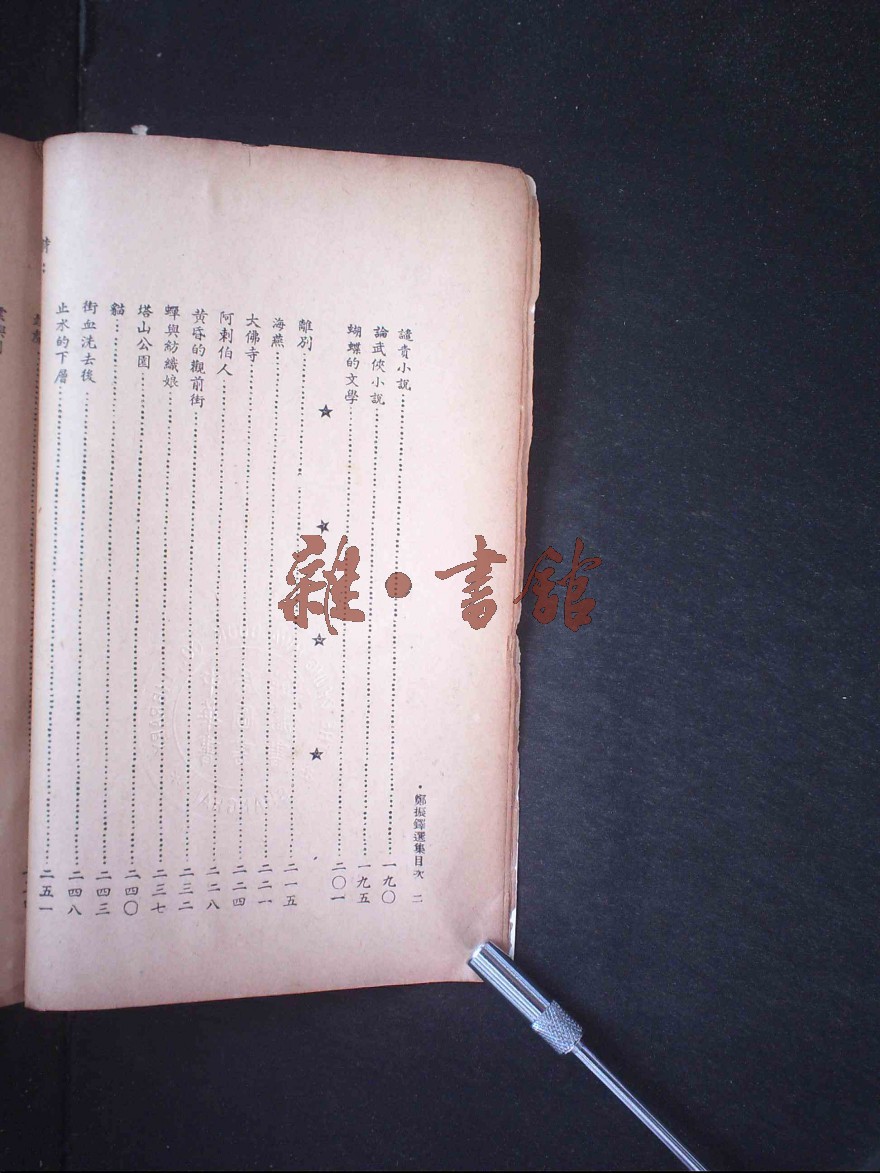 ・鄭振鐸選集目次 二
譴責小說……一九〇
論武俠小說……一九五
蝴蝶的文學……二〇一
★ ★ ★ ★
離別……二一五
海燕……二二一
大佛寺……二二四
阿剌伯人……二二八
黃昏的觀前街……二三二
蟬與紡織娘……二三七
塔山公園……二四〇
貓……二四三
街血洗去後……二四八
止水的下層……二五一
雜・書館